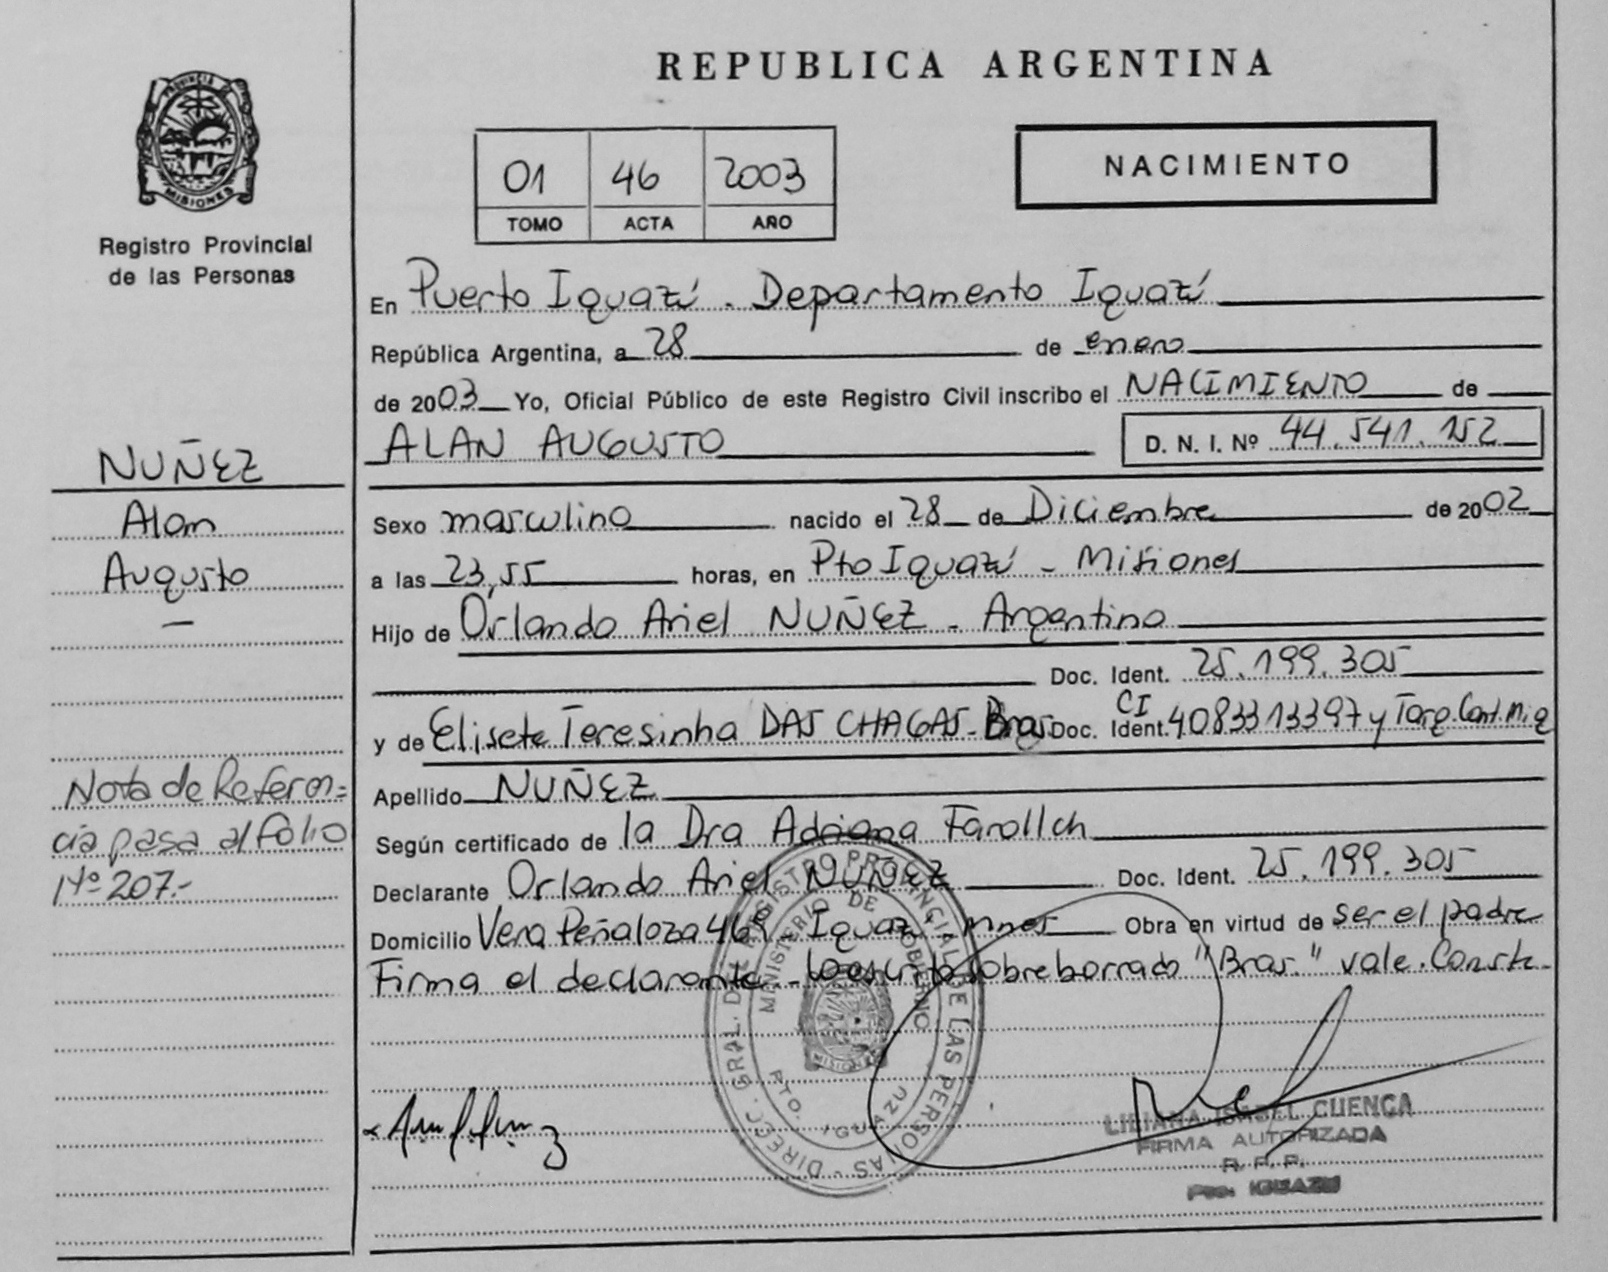 REPUBLICA ARGENTINA
PROVINCIA DE
MISIONES
Registro Provincial
de las Personas
01 46 2003
TOMO ACTA AÑO
NACIMIENTO
En Puerto Iguazú - Departamento Iguazú
República Argentina, a 28 de enero
de 2003 Yo, Oficial Público de este Registro Civil inscribo el NACIMIENTO de
ALAN AUGUSTO D. N. I. Nº 44.541.152
NUÑEZ
Alan
Augusto
—
Sexo masculino nacido el 28 de Diciembre de 2002
a las 23,55 horas, en Pto Iguazú - Misiones
Hijo de Orlando Ariel NUÑEZ - Argentino
Doc. Ident. 25.199.305
y de Elisete Teresinha DAS CHAGAS - Bras Doc. Ident. CI 4083313397 y Targ. Cont. m. g
Apellido NUÑEZ
Nota de Referen=
cia pasa al folio
Nº 207.-
Según certificado de la Dra Adriana
Declarante Orlando Ariel NUÑEZ Doc. Ident. 25.199.305
Domicilio Vera Peñaloza Iguazú mnes Obra en virtud de ser el padre
Firma el declarante - Lo escrito sobre borrado "Bras." vale. Conste.
DIRECC. GRAL. DEL REGISTRO PROVINCIAL DE LAS PERSONAS
MINISTERIO DE GOBIERNO
MISIONES
PTO. IGUAZU
LILIANA ISABEL CUENCA
FIRMA AUTORIZADA
R. P. P.
Pto. IGUAZU